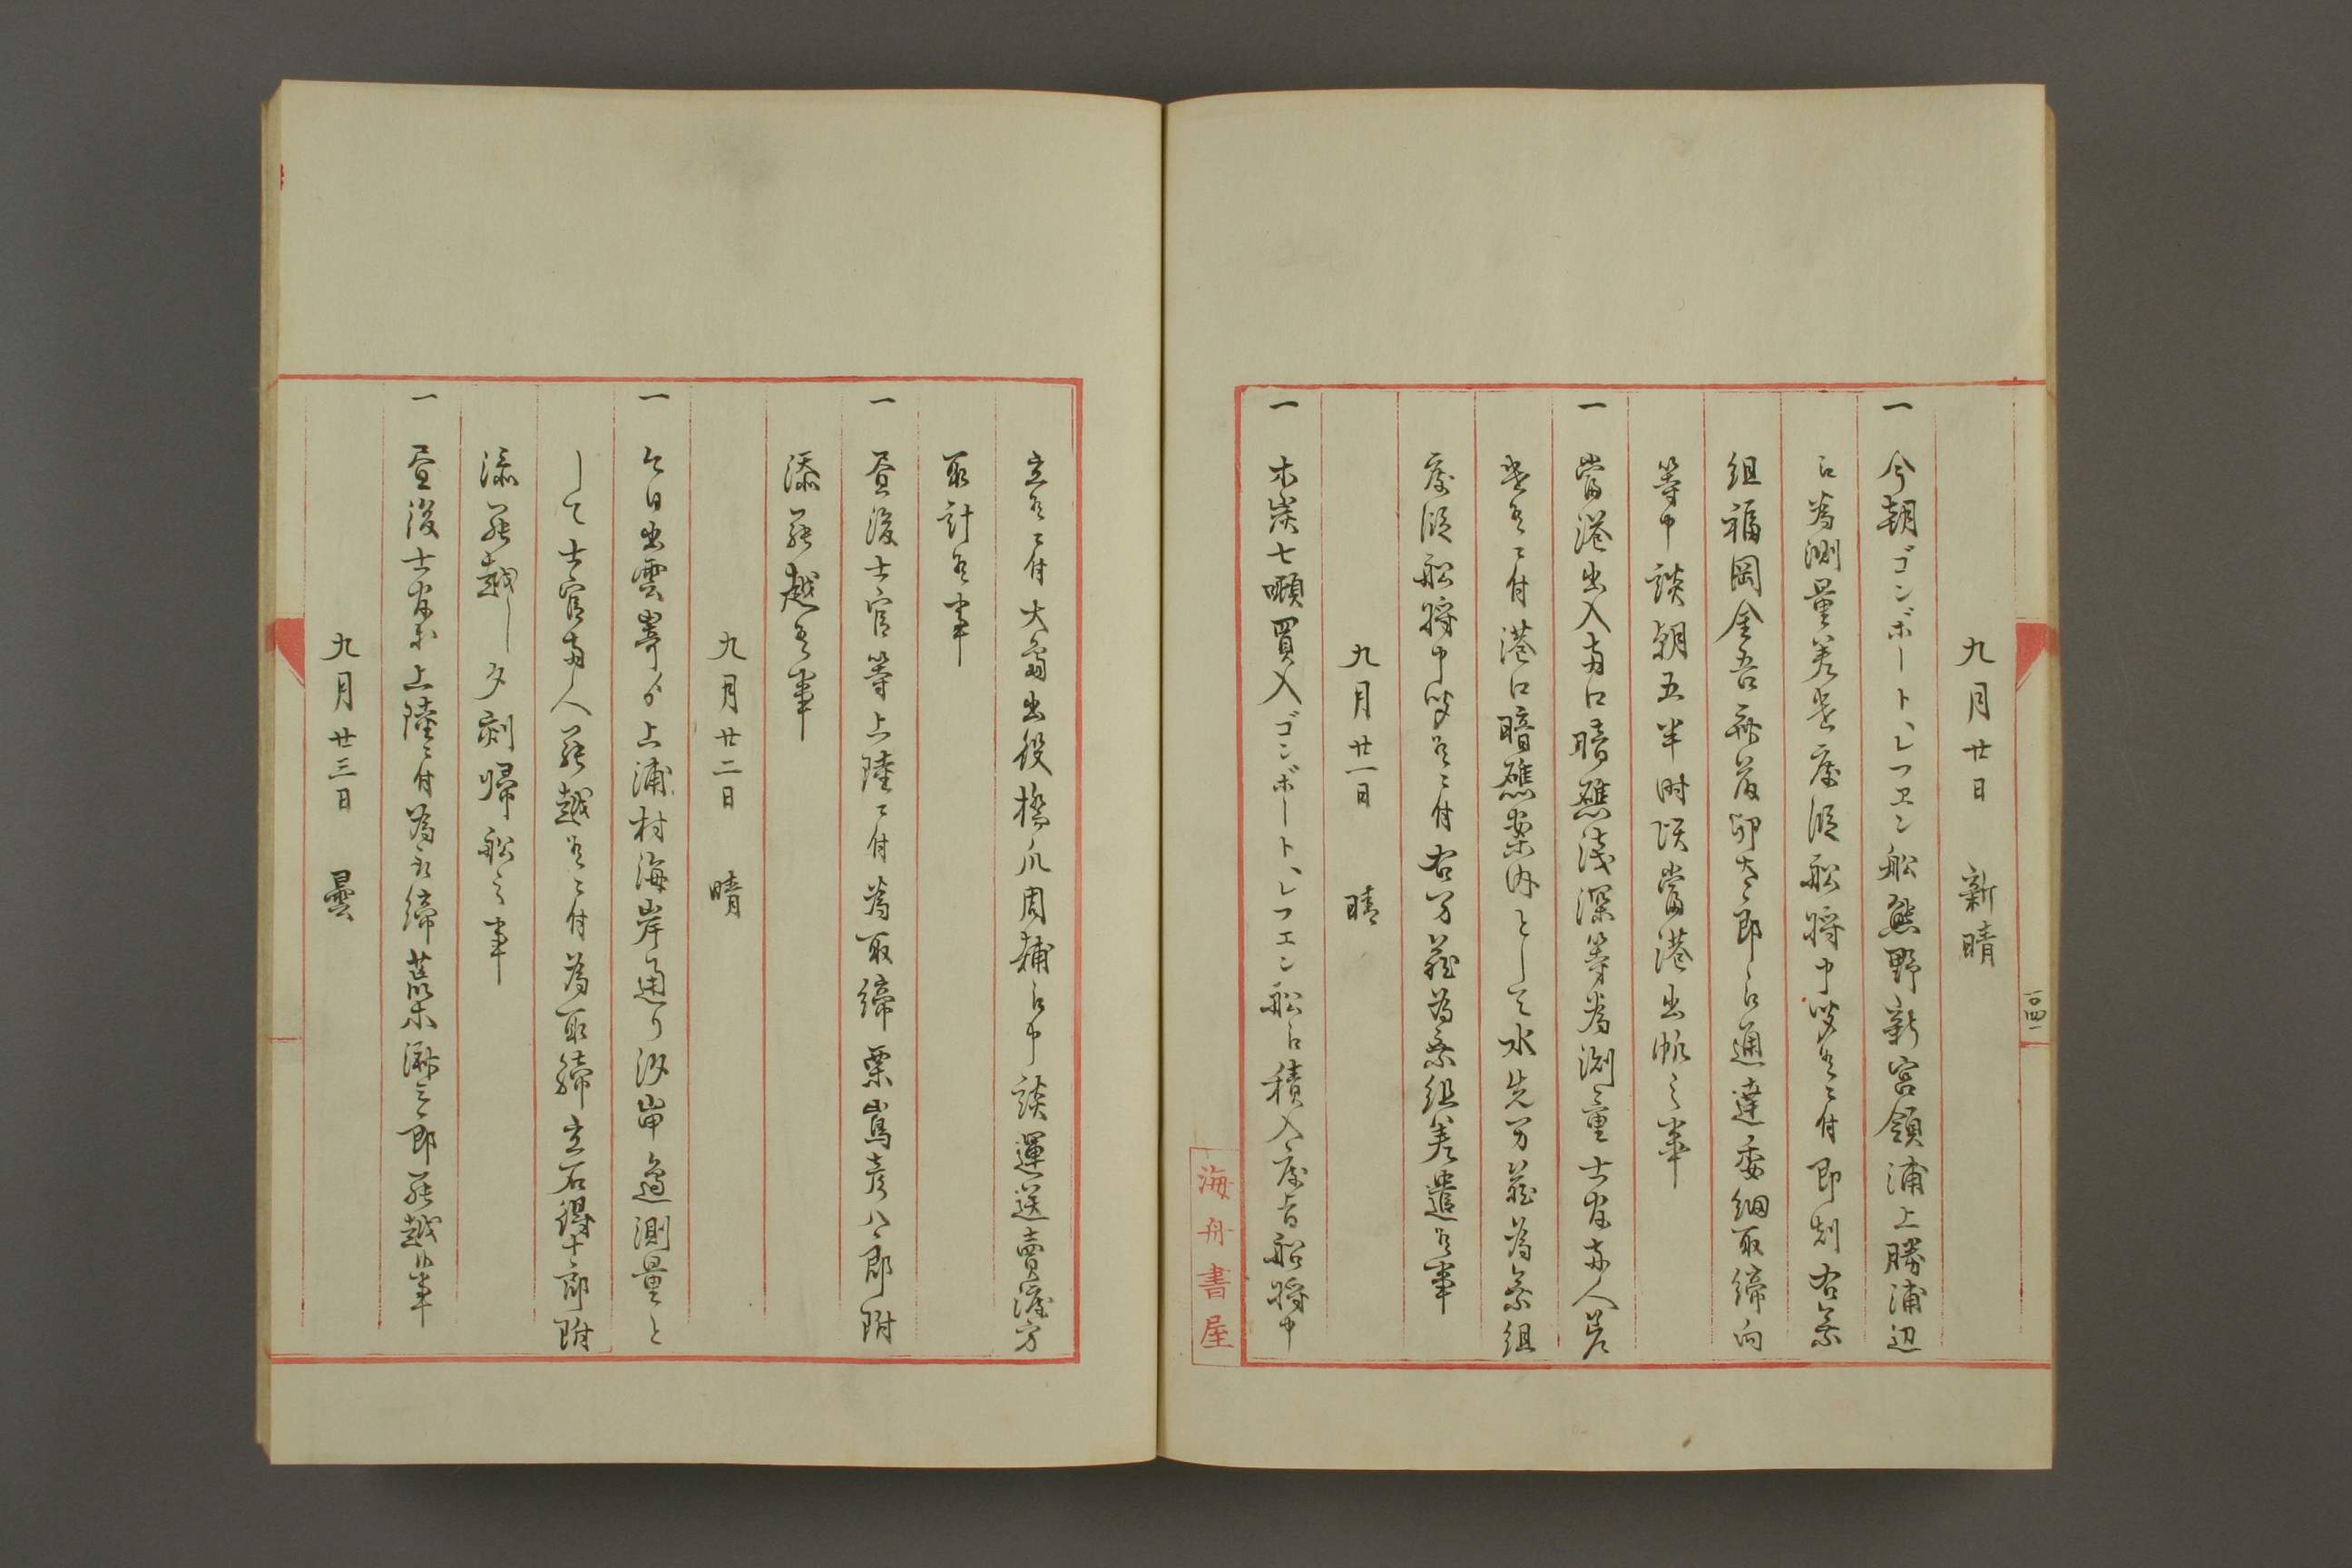 九月廿日 新晴
一 今朝ゴンボート、レフヱン船熊野新宮領浦上勝浦辺
江為測量差出度段船将申聞候ニ付即刻右乗
組福岡金吾 郎太郎江通達委細取締向
等申談朝五半時頃當港出帆之事
一 當港出入両口暗礁淺深等為測量士官両人差
出候ニ付港口暗礁案内として水先方 為乗組
度段船将申聞候ニ付右方 為乗組差遣候事
九月廿一日 晴
一 木炭七噸買入ゴンボート、レフエン船江積入度旨船将申
立候ニ付大島出役橋爪周輔江申談運送賣渡方
取計候事
一 昼後士官等上陸ニ付為取締栗嶌彦八郎附
添罷越候事
九月廿二日 晴
一 今日出雲﨑ゟ上浦村海岸通り汐岬邊測量と
して士官両人罷越候ニ付為取締立石得十郎附
添罷越し夕刻帰船之事
一 昼後士官等上陸ニ付為取締 三郎罷越候事
九月廿三日 曇
一〇四一
海舟書屋